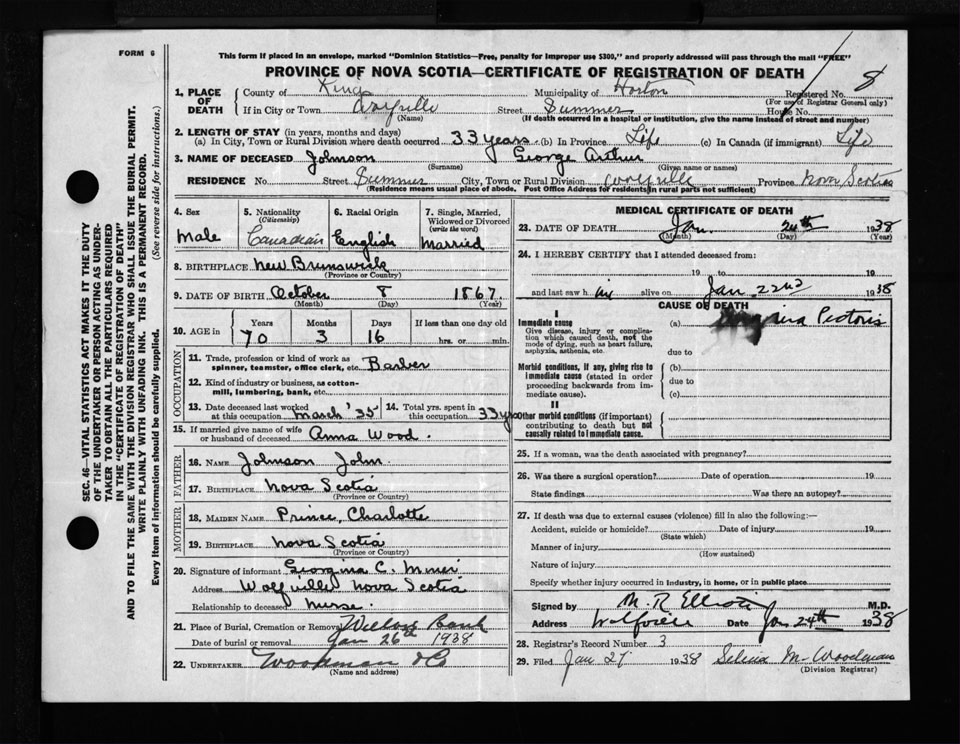 FORM 6
This form if placed in an envelope, marked "Dominion Statistics—Free, penalty for improper use $300," and properly addressed will pass through the mail "FREE"
PROVINCE OF NOVA SCOTIA—CERTIFICATE OF REGISTRATION OF DEATH
8
1. PLACE OF DEATH County of Kings Municipality of Horton Registered No.
(For use of Registrar General only)
If in City or Town Street Summer House No.
(Name) (If death occurred in a hospital or institution, give the name instead of street and number)
2. LENGTH OF STAY (in years, months and days)
(a) In City, Town or Rural Division where death occurred 33 years (b) In Province Life (c) In Canada (if immigrant) Life
3. NAME OF DECEASED Johnson George Arthur
(Surname) (Given name or names)
RESIDENCE No. Street Summer City, Town or Rural Division Wolfville Province Nova Scotia
(Residence means usual place of abode. Post Office Address in rural parts not sufficient)
SEC. 46—VITAL STATISTICS ACT MAKES IT THE DUTY
OF THE UNDERTAKER OR PERSON ACTING AS UNDER-
TAKER TO OBTAIN ALL THE PARTICULARS REQUIRED
IN THE "CERTIFICATE OF REGISTRATION OF DEATH"
AND TO FILE THE SAME WITH THE DIVISION REGISTRAR WHO SHALL ISSUE THE BURIAL PERMIT.
WRITE PLAINLY WITH UNFADING INK. THIS IS A PERMANENT RECORD.
Every item of information should be carefully supplied. (See reverse side for instructions.)
4. Sex
Male
5. Nationality
(Citizenship)
Canadian
6. Racial Origin
English
7. Single, Married, Widowed or Divorced
(write the word)
Married
8. BIRTHPLACE New Brunswick
(Province or Country)
9. DATE OF BIRTH October 8 1867
(Month) (Day) (Year)
10. AGE in Years Months Days If less than one day old
70 3 16 hrs. or min.
OCCUPATION
11. Trade, profession or kind of work as spinner, teamster, office clerk, etc. Barber
12. Kind of industry or business, as cotton-mill, lumbering, bank, etc.
13. Date deceased last worked at this occupation March '35
14. Total yrs. spent in this occupation 33 years
15. If married give name of wife or husband of deceased Anna Wood.
FATHER
16. NAME Johnson John
17. BIRTHPLACE Nova Scotia
(Province or Country)
MOTHER
18. MAIDEN NAME Prince, Charlotte
19. BIRTHPLACE Nova Scotia
(Province or Country)
20. Signature of informant Georgina C. Miner
Address Wolfville Nova Scotia
Relationship to deceased Nurse.
21. Place of Burial, Cremation or Removal Willow Bank
Date of burial or removal Jan 26th 1938
22. UNDERTAKER Woodman & Co
(Name and address)
MEDICAL CERTIFICATE OF DEATH
23. DATE OF DEATH Jan. 24th 1938
(Month) (Day) (Year)
24. I HEREBY CERTIFY that I attended deceased from:
19 to 19
and last saw him alive on Jan 22nd 1938
CAUSE OF DEATH
I
Immediate cause
Give disease, injury or complication which caused death, not the mode of dying, such as heart failure, asphyxia, asthenia, etc.
(a) Angina Pectoris
due to
Morbid conditions, if any, giving rise to immediate cause (stated in order proceeding backwards from immediate cause).
(b)
due to
(c)
II
Other morbid conditions (if important) contributing to death but not causally related to immediate cause.
25. If a woman, was the death associated with pregnancy?
26. Was there a surgical operation? Date of operation 19
State findings Was there an autopsy?
27. If death was due to external causes (violence) fill in also the following:—
Accident, suicide or homicide? Date of injury 19
(State which)
Manner of injury
(How sustained)
Nature of injury
Specify whether injury occurred in industry, in home, or in public place
Signed by M. R. Elliott M.D.
Address Wolfville Date Jan 24th 1938
28. Registrar's Record Number 3
29. Filed Jan 27 1938 M. Woodman
(Division Registrar)